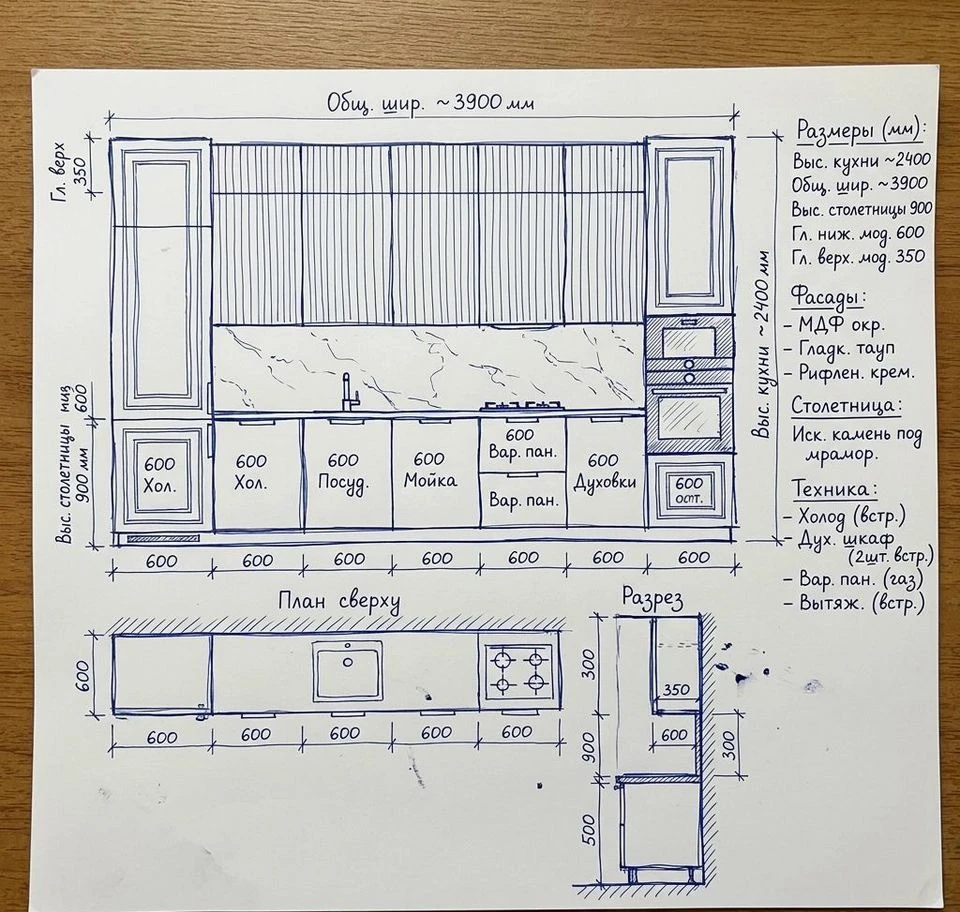 Общ. шир. ~3900 мм
Гл. верх
350
Выс. столетницы мцз
900 мм
600
Выс. кухни ~2400 мм
600
Хол.
600
Хол.
600
Посуд.
600
Мойка
600
Вар. пан.
Вар. пан.
600
Духовки
600
опт.
600
600
600
600
600
600
600
План сверху
600
600
600
600
600
600
Разрез
300
900
500
350
600
300
Размеры (мм):
Выс. кухни ~2400
Общ. шир. ~3900
Выс. столетницы 900
Гл. ниж. мод. 600
Гл. верх. мод. 350
Фасады:
- МДФ окр.
- Гладк. тауп
- Рифлен. крем.
Столетница:
Иск. камень под
мрамор.
Техника:
- Холод (встр.)
- Дух. шкаф
(2шт. встр.)
- Вар. пан. (газ)
- Вытяж. (встр.)